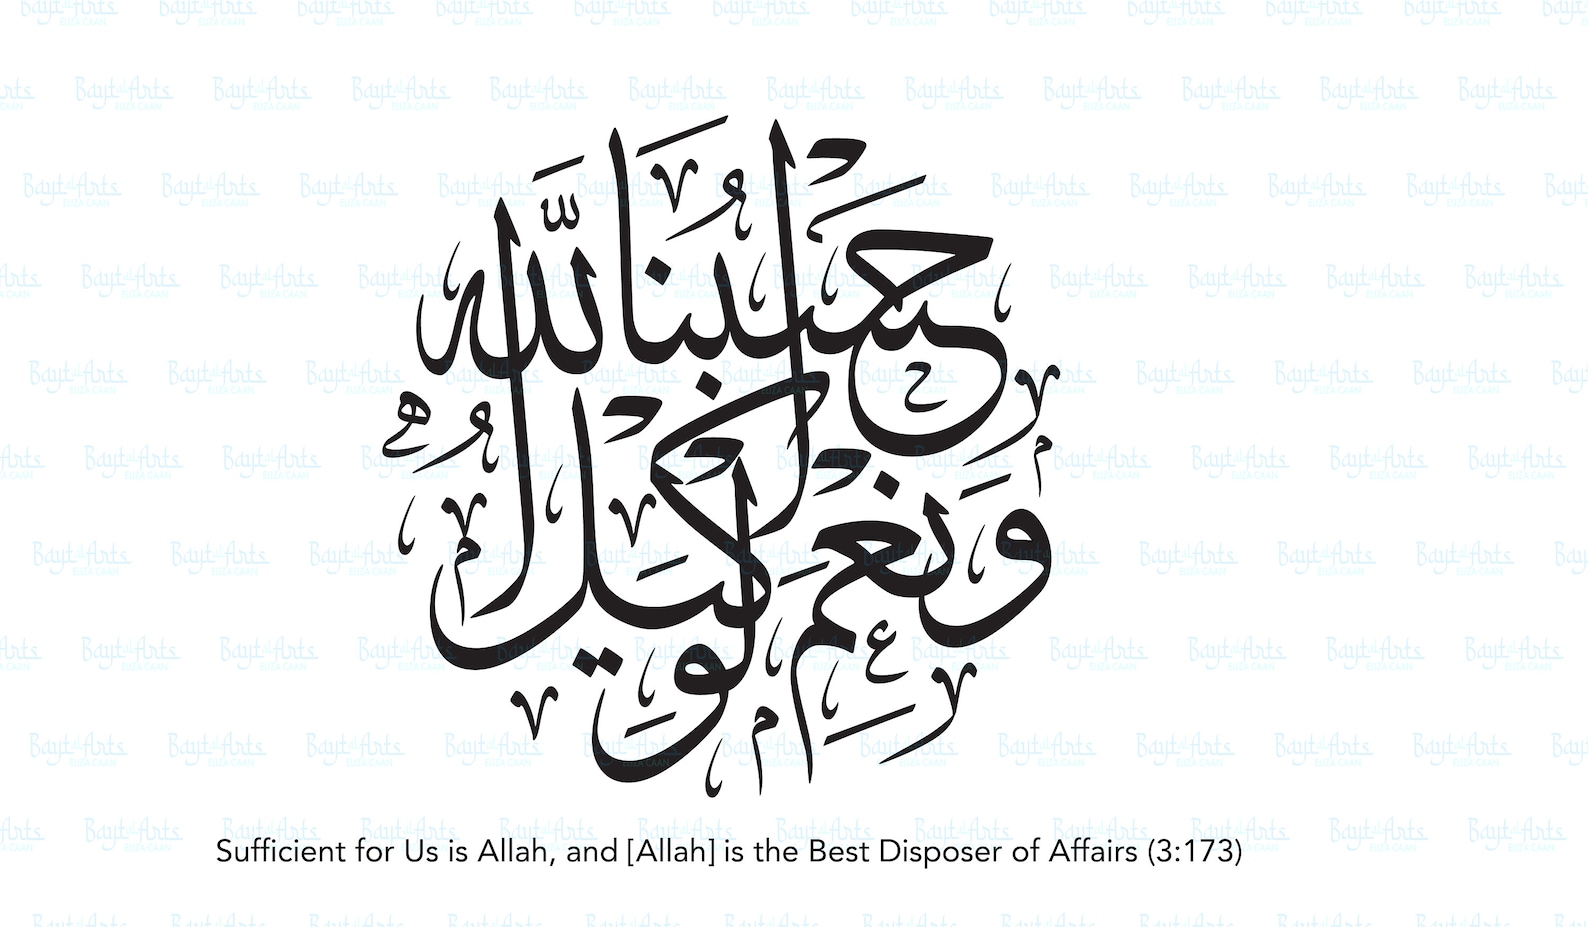 حَسْبُنَا اللّٰهُ
وَنِعْمَ الْوَكِيلُ
Sufficient for Us is Allah, and [Allah] is the Best Disposer of Affairs (3:173)
Bayt al Arts
ELIZA CAAN